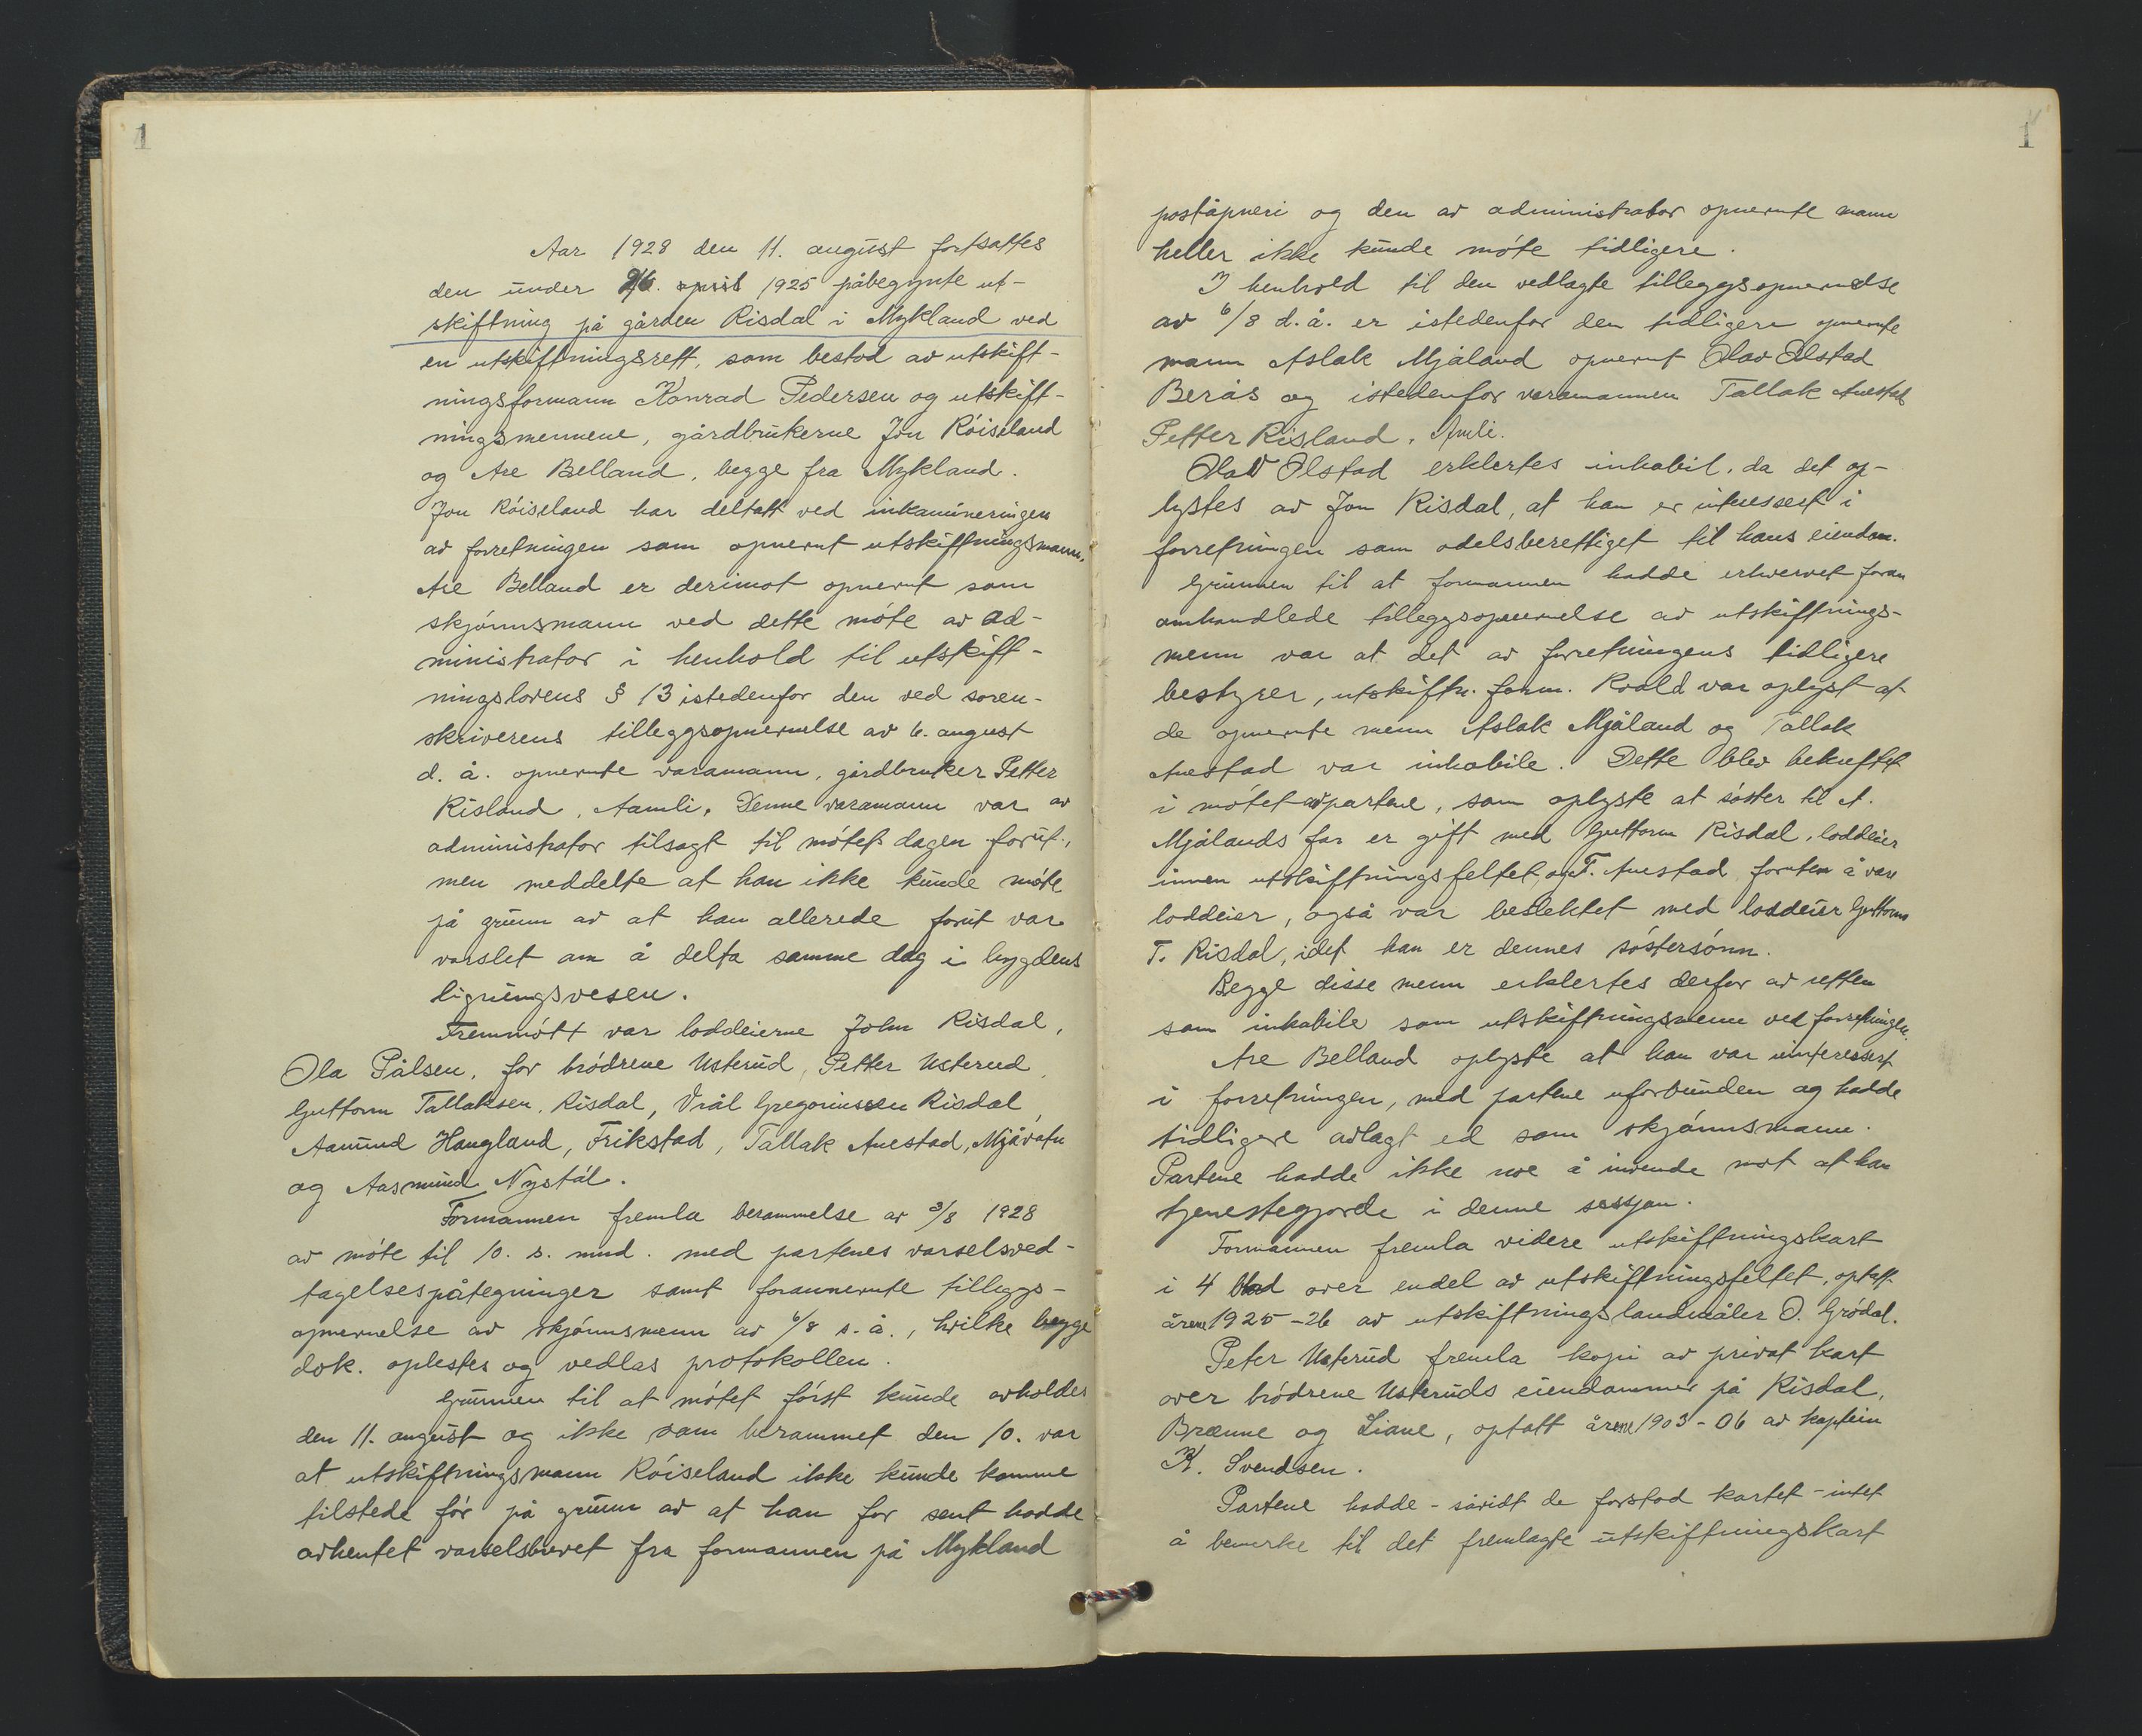 1
Aar 1928 den 11. august fortsattes
den under 26. april 1925 påbegynte ut-
skiftning på gården Risdal i Mykland ved
en utskiftningsrett, som bestod av utskift-
ningsformann Konrad Pedersen og utskift-
ningsmennene, gårdbrukerne Jon Röiseland
og Are Belland, begge fra Mykland.
Jon Röiseland har deltatt ved inkamineringen
av forretningen som opnevnt utskiftningsmann,
Are Belland er derimot opnevnt som
skjönnsmann ved dette möte av ad-
ministrator i henhold til utskift-
ningslovens § 13 istedenfor den ved soren-
skriverens tilleggsopnevnelse av 6. august
d. å. opnevnte varamann, gårdbruker Petter
Risland, Aamli. Denne varamann var av
administrator tilsagt til mötet dagen forut,
men meddelte at han ikke kunde möte
på grunn av at han allerede forut var
varslet om å delta samme dag i bygdens
ligningsvesen.
Fremmött var loddeierne John Risdal,
Ola Pålsen, for brödrene Usterud, Petter Usterud,
Guttorm Tallaksen, Risdal, Vrål Gregoriussen Risdal,
Aamund Haugland, Frikstad, Tallak Anestad, Mjåvatn
og Aasmund Nystöl.
Formannen fremla berammelse av 3/8 1928
av möte til 10. s. mnd. med partenes varselsved-
tagelsespåtegninger samt forannevnte tilleggs-
opnevnelse av skjönnsmenn av 6/8 s. å., hvilke begge
dok. oplestes og vedlas protokollen.
Grunnen til at mötet först kunde avholdes
den 11. august og ikke som berammet den 10. var
at utskiftningsmann Röiseland ikke kunde komme
tilstede för på grunn av at han for sent hadde
avhentet varselsbrevet fra formannen på Mykland
1
poståpneri og den av administrator opnevnte mann
heller ikke kunde möte tidligere.
I henhold til den vedlagte tilleggsopnevndse
av 6/8 d. å. er istedenfor den tidligere opnevnte
mann Aslak Mjåland opnevnt Olav Ølstad
Berås og istedenfor varamannen Tallak Anestad
Petter Risland, Åmli.
Olav Ølstad erklertes inhabil, da det op-
lystes av Jon Risdal, at han er interessert i
forretningen som odelsberettiget til hans eiendom.
Grunnen til at formannen hadde erhvervet foran
omhandlede tilleggsopnevnelse av utskiftnings-
menn var at det av forretningens tidligere
bestyrer, utskiftn. form. Roald var oplyst at
de opnevnte menn Aslak Mjåland og Tallak
Anestad var inhabile. Dette blev bekreftet
i mötet av partene, som oplyste at söster til A.
Mjålands far er gift med Guttorm Risdal, loddeier
innen utskiftningsfeltet, og T. Anestad foruten å være
loddeier, også var beslektet med loddeier Guttorm
T. Risdal, idet han er dennes söstersönn.
Begge disse menn erklertes derfor av retten
som inhabile som utskiftningsmenn ved forretningen.
Are Belland oplyste at han var uinteressert
i forretningen, med partene uforbunden og hadde
tidligere avlagt ed som skjönnsmann.
Partene hadde ikke noe å invende mot at han
tjenestegjorde i denne sessjon.
Formannen fremla videre utskiftningskart
i 4 blad over endel av utskiftningsfeltet, optatt
årene 1925-26 av utskiftningslandmåler O. Grödal.
Peter Usterud fremla kopi av privat kart
over brödrene Usteruds eiendommer på Risdal,
Brænne og Liane, optatt årene 1903-06 av kaptein
K. Svendsen.
Partene hadde - såvidt de forstod kartet - intet
å bemerke til det fremlagte utskiftningskart